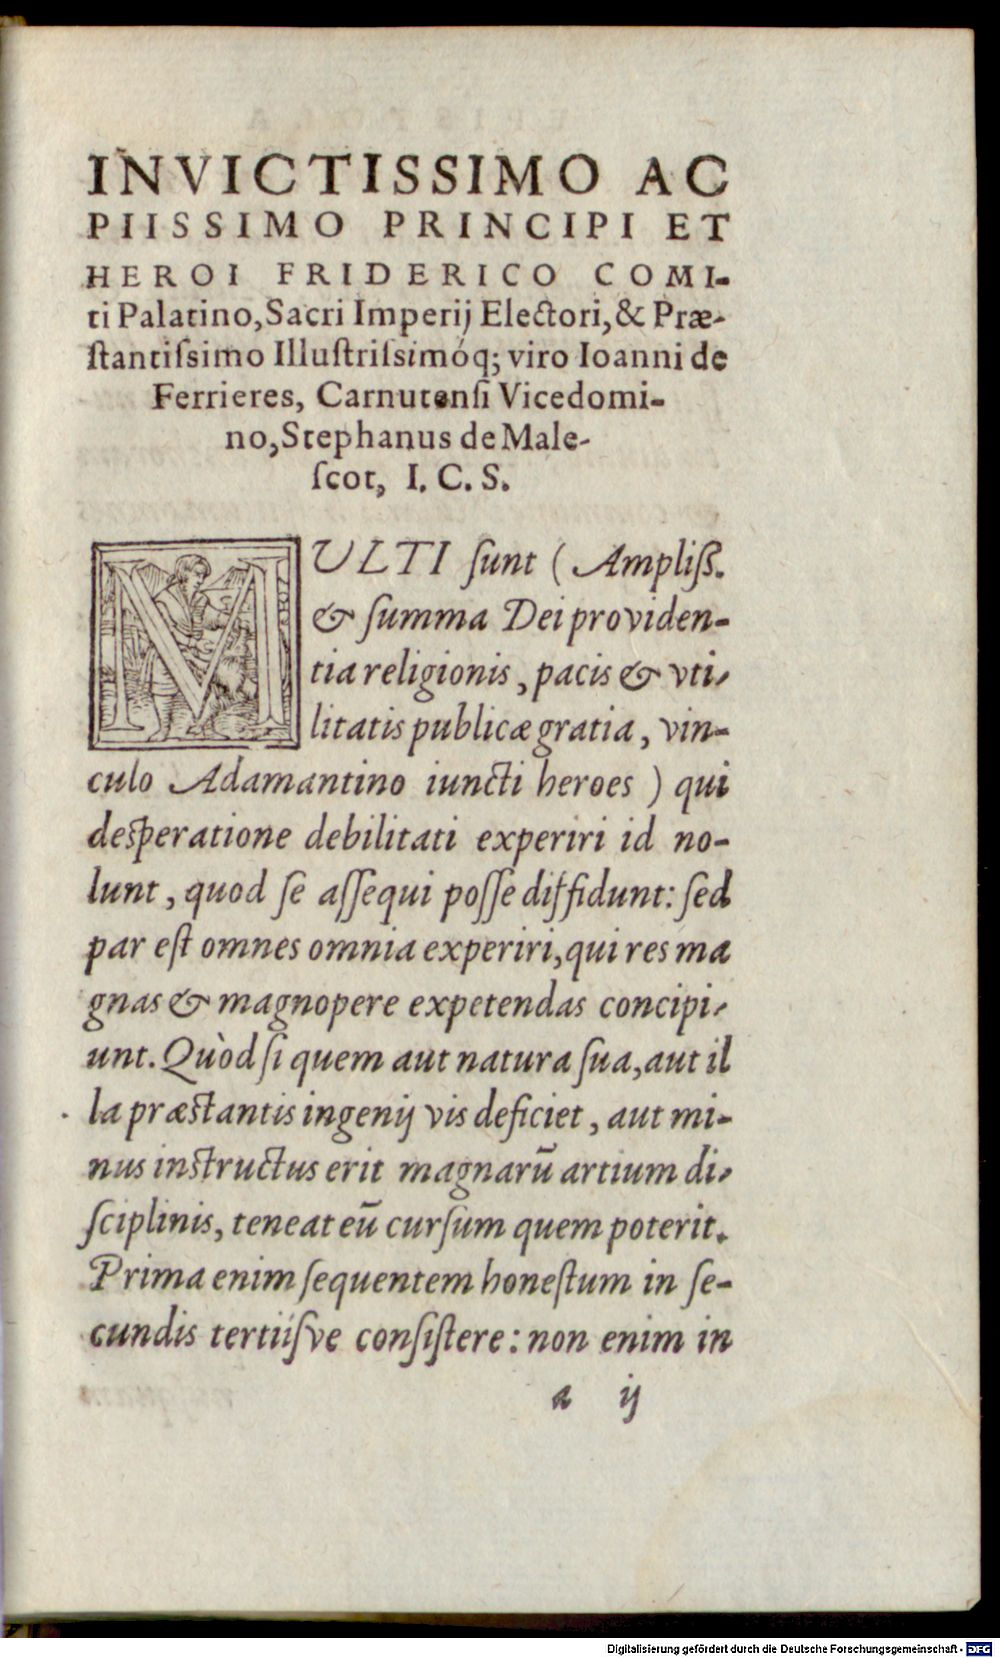 INVICTISSIMO AC
PIISSIMO PRINCIPI ET
HEROI FRIDERICO COMI-
ti Palatino, Sacri Imperij Electori, & Præ-
ſtantiſsimo Illuſtriſsimóq; viro Ioanni de
Ferrieres, Carnutenſi Vicedomi-
no, Stephanus de Male-
ſcot, I. C. S.
MULTI ſunt (Ampliſß.
& ſumma Dei providen-
tia religionis, pacis & vti-
litatis publicæ gratia, vin-
culo Adamantino iuncti heroes) qui
deſperatione debilitati experiri id no-
lunt, quod ſe aſſequi poſſe diffidunt: ſed
par eſt omnes omnia experiri, qui res ma
gnas & magnopere expetendas concipi-
unt. Quòd ſi quem aut natura ſua, aut il
la præſtantis ingenij vis deficiet, aut mi-
nus inſtructus erit magnarū artium di-
ſciplinis, teneat eū curſum quem poterit.
Prima enim ſequentem honeſtum in ſe-
cundis tertiiſve conſiſtere: non enim in
a ij
Digitalisierung gefördert durch die Deutsche Forschungsgemeinschaft - DFG